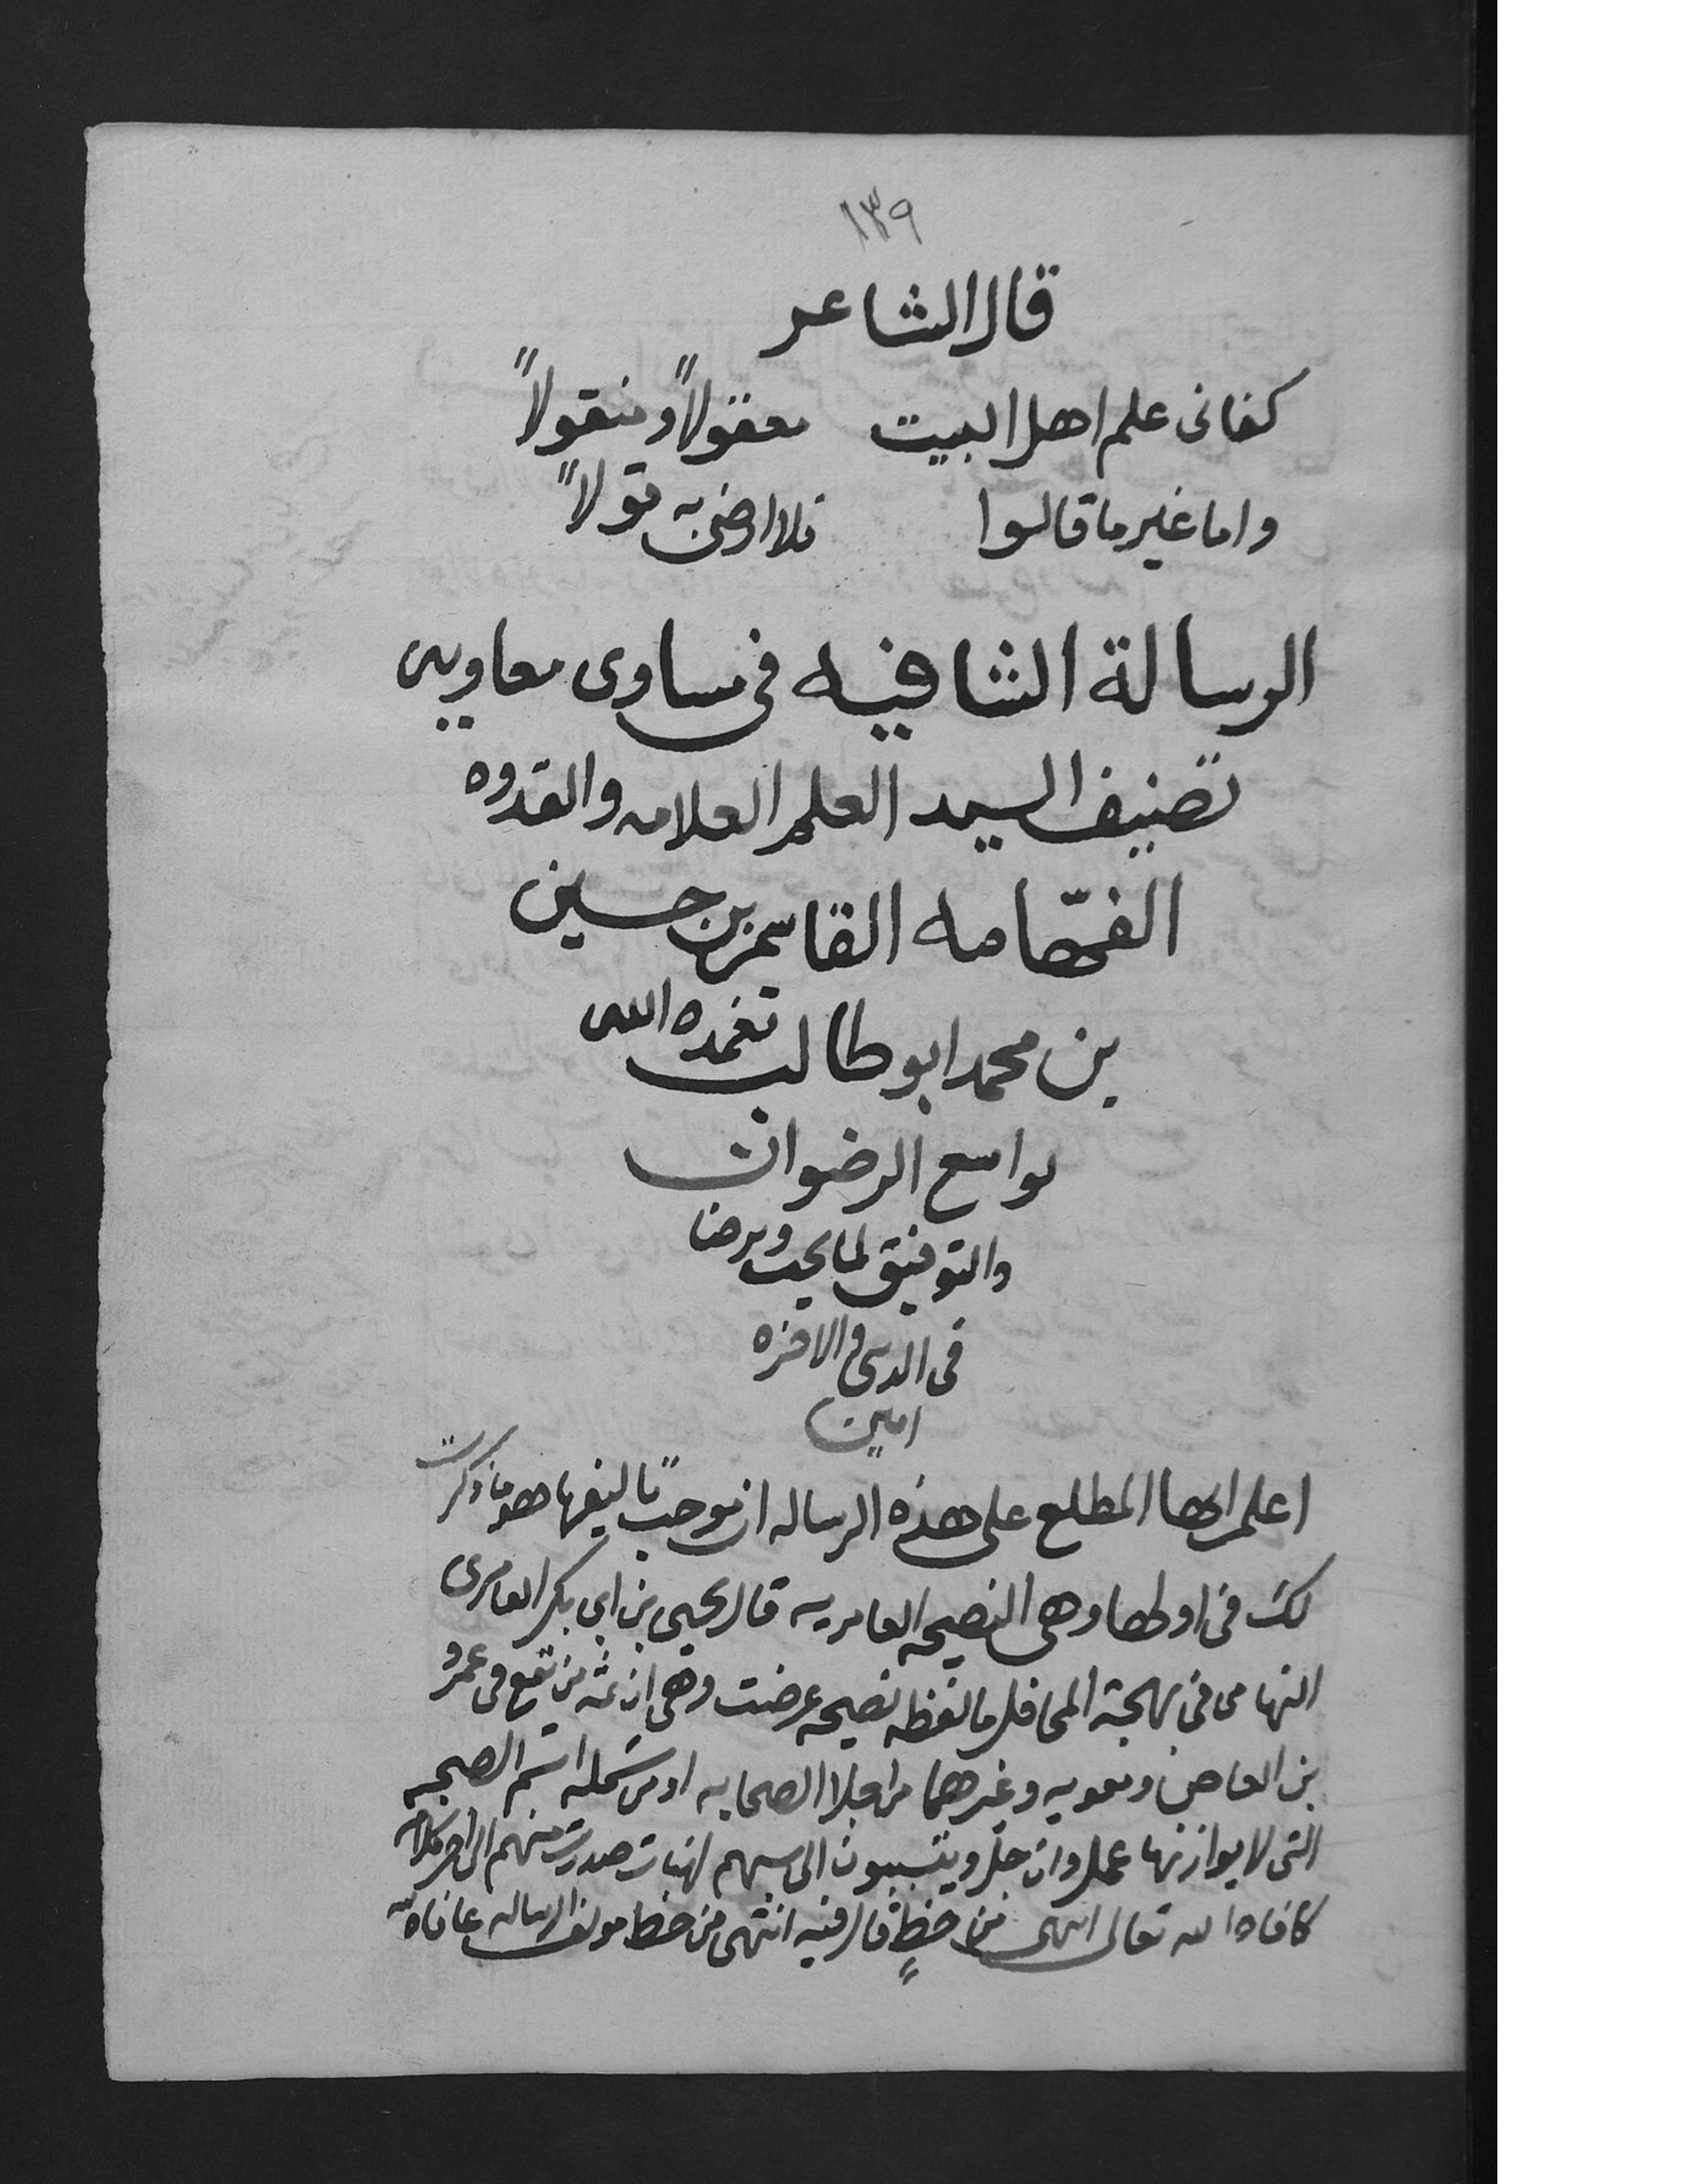 ١٣٩
قال الشاعر
كفانى علم اهل البيت معقولاً ومنقولاً
واما غير ما قالوا فلا ارضى به قولاً
الرسالة الشافيه فى مساوى معاويه
تصنيف السيد العلم العلامه والقدوه
الفهّامه القاسم بن حسين
بن محمد ابو طالب تغمده الله
بواسع الرضوان
والتوفيق لما يحب ويرضا
فى الدنيا والاخره
امين
اعلم ايها المطلع على هذه الرساله ان موجب تاليفها هو ما ذكرت
لك فى اولها وهى النصيحه العامريه قال يحيى بن ابى بكر العامرى
التهامى فى بهجة المحافل ما لفظه نصيحه عرضت وهى ان ثمه من يقع فى عمرو
بن العاص ومعويه وغيرهما من اجلا الصحابه او من شمله اسم الصحبه
التى لا يوازنها عمل وان جل ويتسببون الى سبهم لهنات صدرت منهم الى اخر كلامه
كافاه الله تعالى انتهى من خط قال فيه انتهى من خط مولف الرساله عافاه الله